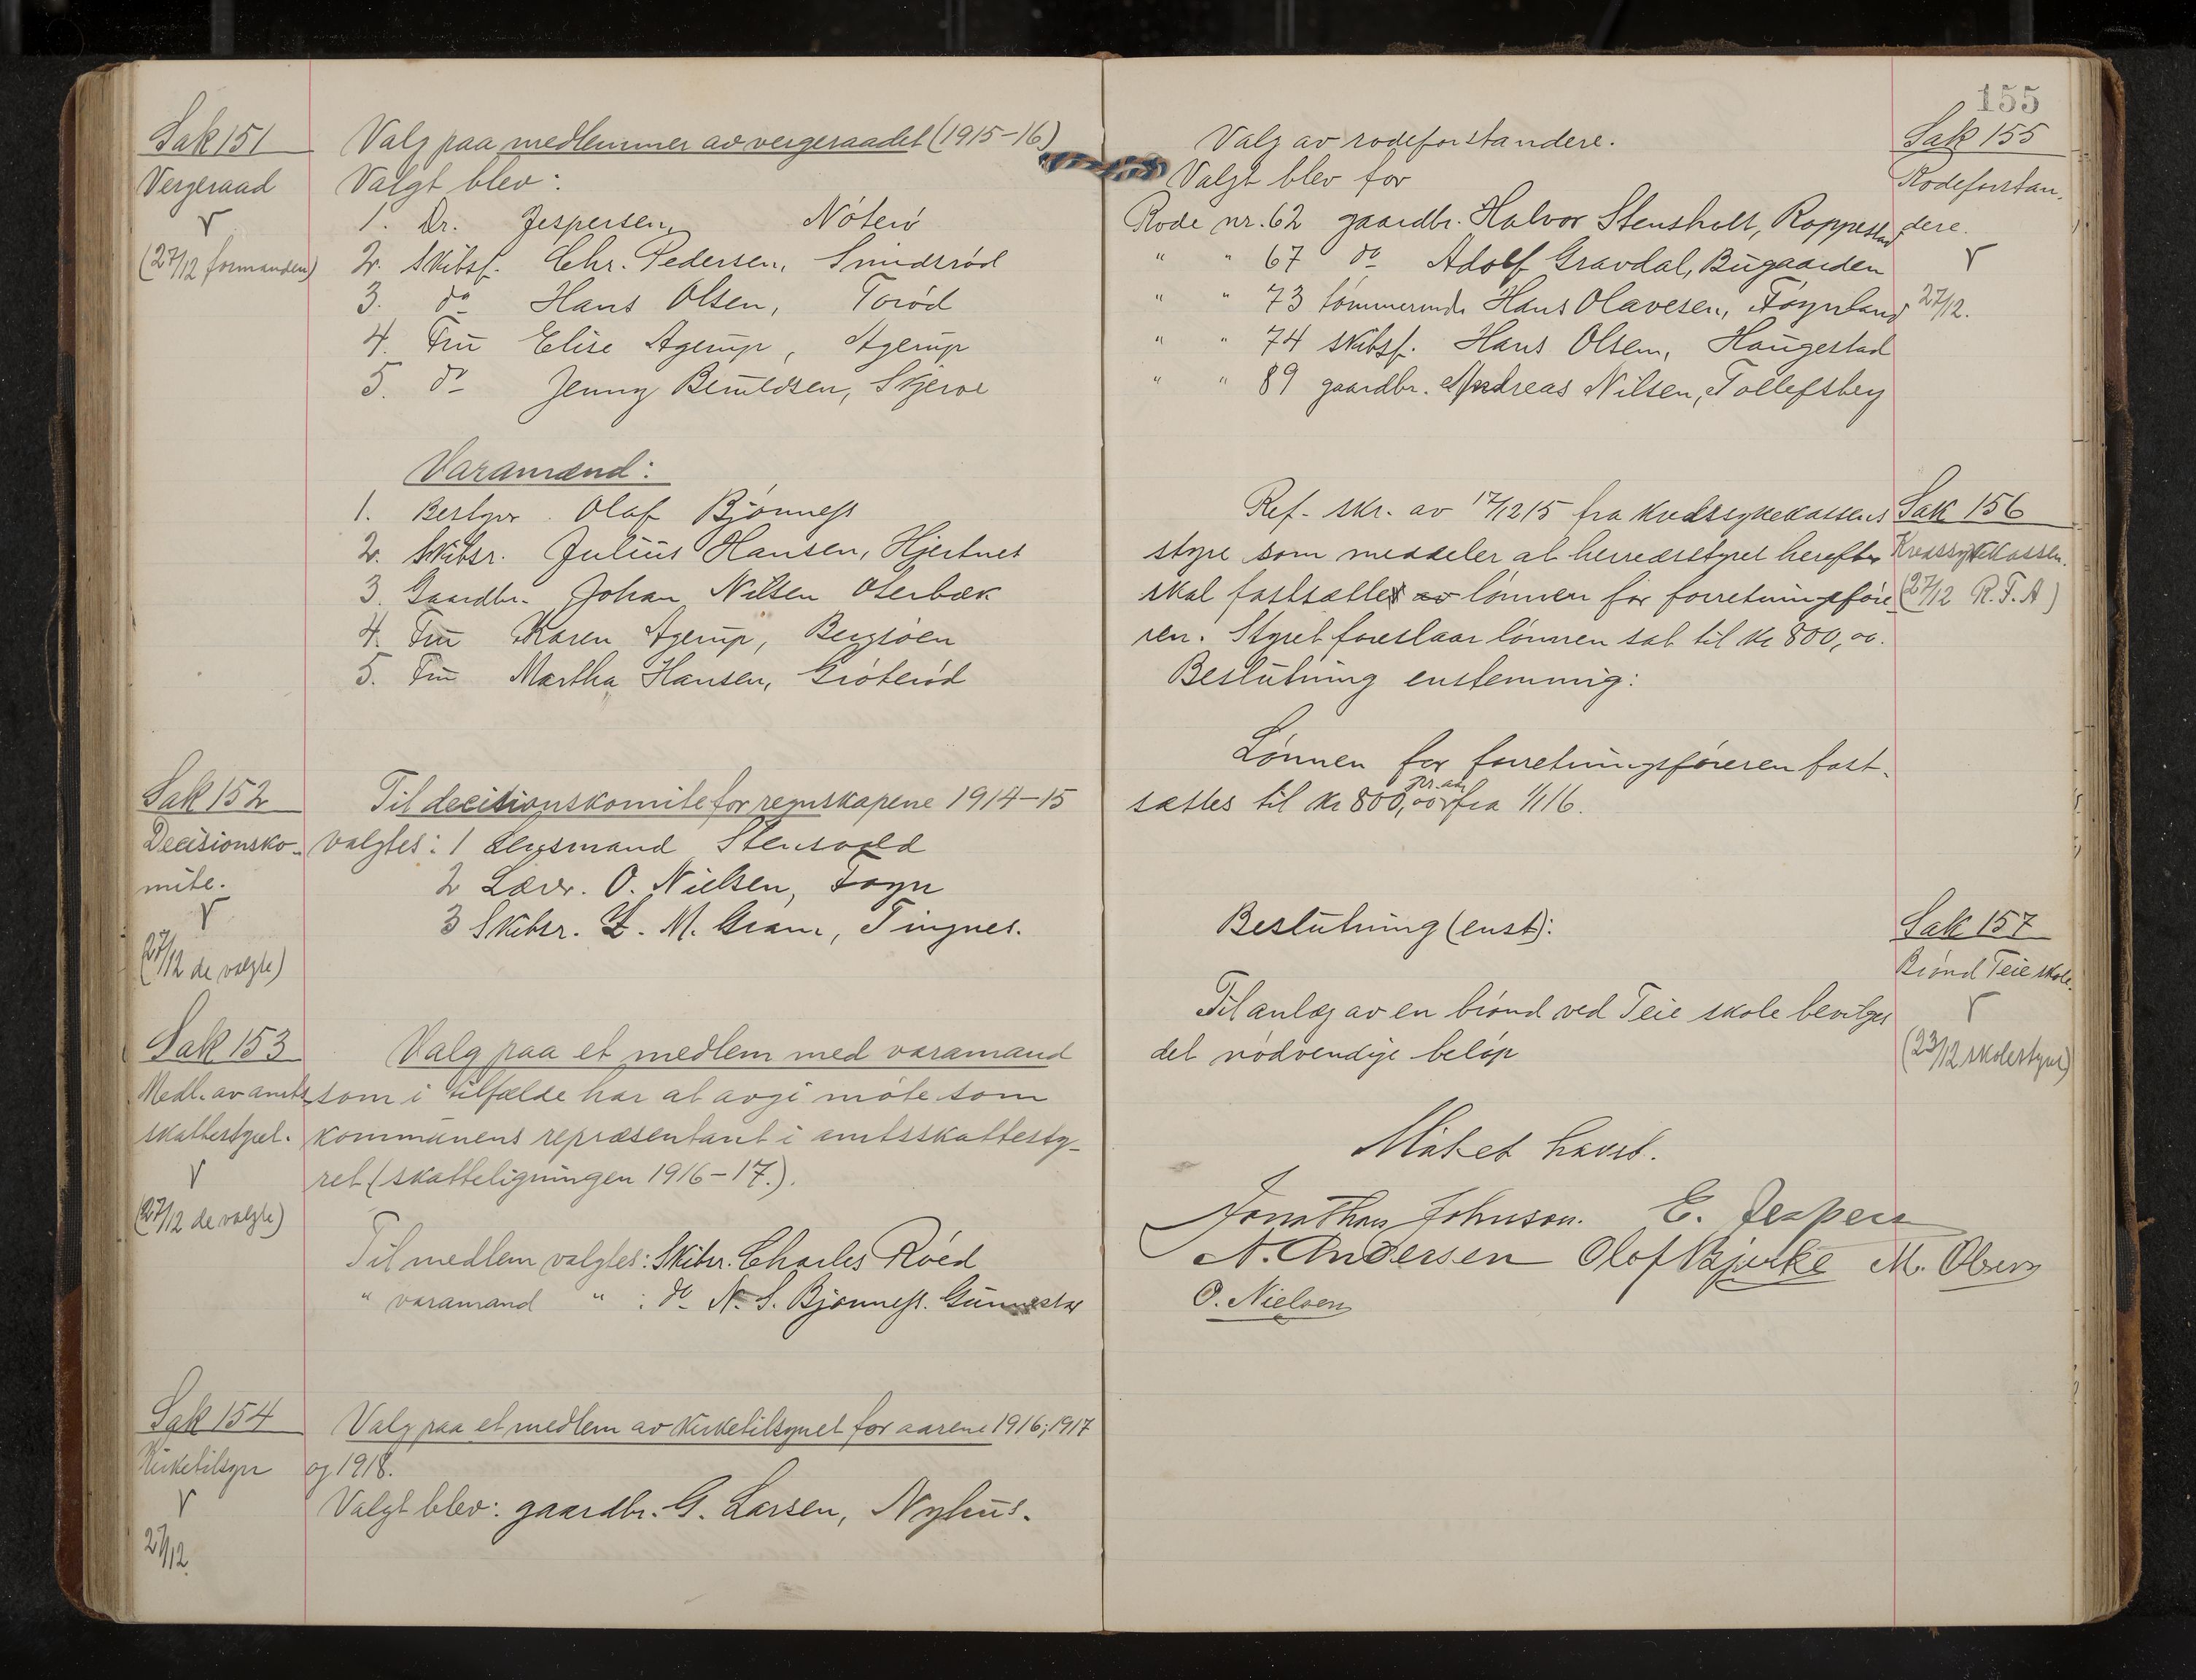 Sak 151
Vergeraad
V
(27/12 formanden)
Valg paa medlemmer av vergeraadet (1915-16)
Valgt blev:
1. Dr. Jespersen, Nøterø
2. Skibsf. Chr. Pedersen, Smidsrød
3. do Hans Olsen, Torød
4. Fru Elise Agerup, Agerup
5. do Jenny Berntdsen, Skjerve
Varamænd:
1. Bestyr. Olaf Bjønness
2. Skibsr. Julius Hansen, Hjertnes
3. Gaardbr. Johan Nilsen Oterbæk
4. Fru Karen Agerup, Bergsøen
5. Fru Martha Hansen, Grøterød
Sak 152
Decisionsko-
mite.
V
(27/12 de valgte)
Til decisionskomite for regnskapene 1914-15
valgtes: 1 Lensmand Stensvold
2 Lærer. O. Nielsen, Føyn
3 Skibsr. L. M. Gram, Tingnes.
Sak 153
Medl. av amts
skattestyret.
V
(27/12 de valgte)
Valg paa et medlem med varamand
som i tilfælde har at avgi møte som
kommunens repræsentant i amtsskattesty-
ret (skatteligningen 1916-17.).
Til medlem valgtes: Skibsr. Charles Röed
" varamand " : do N. S. Bjønness. Gunnestad
Sak 154
Kirketilsyn
V
27/12.
Valg paa et medlem av kirketilsynet for aarene 1916, 1917
og 1918.
Valgt blev: gaardbr. G. Larsen, Nyhus.
155
Sak 155
Rodeforstan.
dere.
V
27/12.
Valg av rodeforstandere.
Valgt blev for
Rode nr. 62 gaardbr. Halvor Stensholt, Roppestad
" " 67 do Adolf Gravdal, Bugaarden
" " 73 tømmermd. Hans Olavesen, Føynland
" " 74 skibsf. Hans Olsen, Haugestad
" " 89 gaardbr. Andreas Nilsen, Tollefsbøy
Sak 156
Kredssykekassen.
(27/12 R.T.A)
Ref. skr. av 17/12 15 fra kredssykekassens
styre som meddeler at herredsstyret herefter
skal fastsætte av lønnen for forretningsføre-
ren. Styret foreslaar lønnen sat til kr 800,00.
Beslutning enstemmig:
Lønnen for forretningsføreren fast-
sættes til kr 800,00 pr. aar fra 1/1 16.
Sak 157
Brønd Teie skole.
V
(23/12 skolestyret)
Beslutning (enst):
Til anlæg av en brønd ved Teie skole bevilges
det nødvendige beløp
Møtet hævet.
Jonathan Johnson. E. Jespersen
A. Andersen Olof Bjerke M. Olsen
O. Nielsen